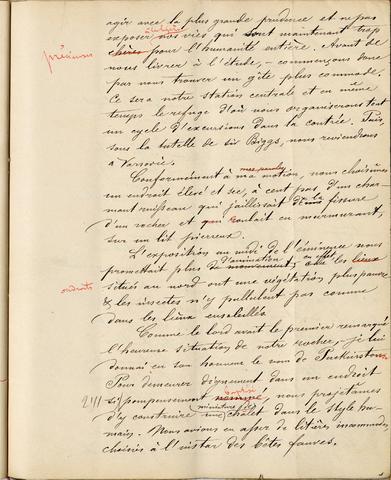 agir avec la plus grande prudence et ne pas
exposer nos vies qui sont maintenant trop
précieuses chères pour l'humanité entière. Avant de
nous livrer à l'étude, – commençons donc
par nous trouver un gîte plus commode.
Ce sera notre station centrale et en même
temps le refuge d'où nous organiserons tout
un cycle d'excursions dans la contrée. Puis,
sous la tutelle de Sir Biggs, nous reviendrons
à Varsovie.
mes paroles
Conformément à ma motion, nous choisîmes
un endroit élevé et sec, à cent pas d'un char
mant ruisseau qui jaillissait de la fissure
d'un rocher et qui coulait en murmurant,
sur un lit pierreux.
L'exposition au midi de l'éminence nous
d'animation en effet,
promettait plus de mouvement, les lieux
endroits situés au nord ont une végétation plus pauvre
& les insectes n'y pullulent pas comme
dans les lieux ensoleillés.
Comme le lord avait le premier remarqué
l'heureuse situation de notre rocher, je lui
donnai en son honneur le nom de
Pour demeurer dignement dans un endroit
si pompeusement nommé, nous projetâmes
miniature
d'y construire un châlet dans le style hu-
main. Nous avions eu assez de litières incommodes,
choisies à l'instar des bêtes fauves.